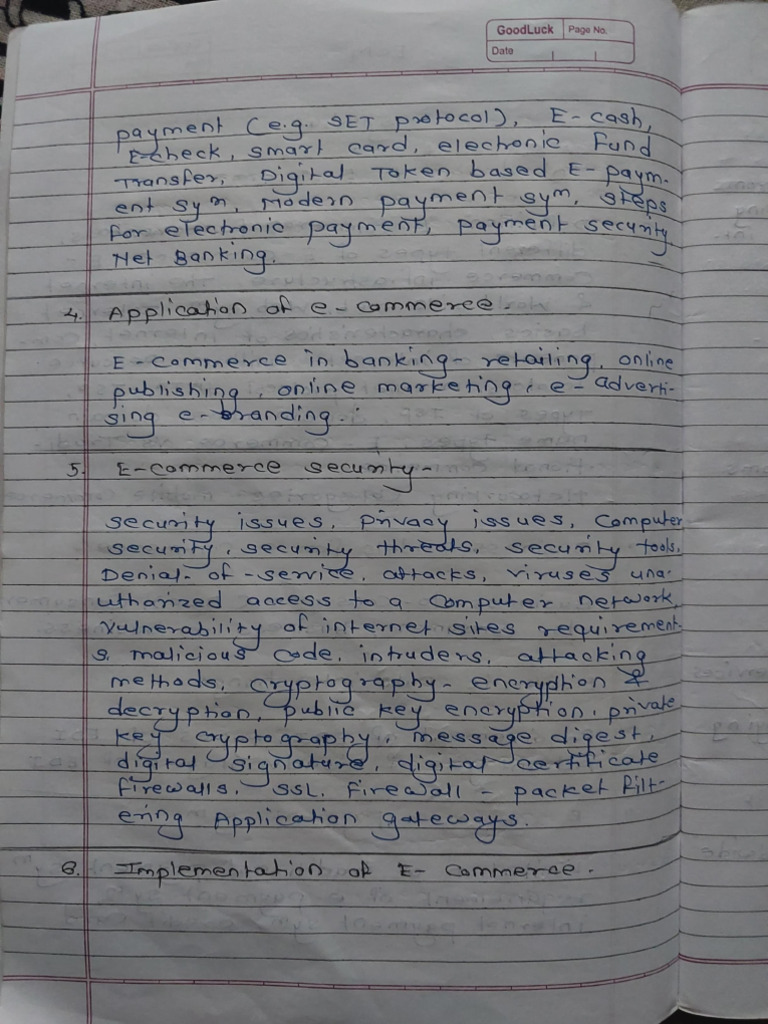 GoodLuck Page No.
Date
payment (e.g. SET protocol), E-cash,
E-check, smart card, electronic Fund
Transfer, Digital Token based E-paym-
ent sym, Modern payment sym, steps
for electronic payment, payment security
Net Banking.
4. Application of e-commerce.
E-commerce in banking- retailing, online
publishing, online marketing, e-adverti-
sing e-branding.
5. E-commerce security-
security issues, privacy issues, computer
security, security threats, security tools,
Denial-of-service, attacks, viruses una-
uthorized access to a computer network,
vulnerability of internet sites requirement-
s. malicious code, intruders, attacking
methods, cryptography- encryption &
decryption, public key encryption, private
key cryptography, message digest,
digital signature, digital certificate
firewalls, SSL, firewall - packet filt-
ering Application gateways.
6. Implementation of E-commerce.